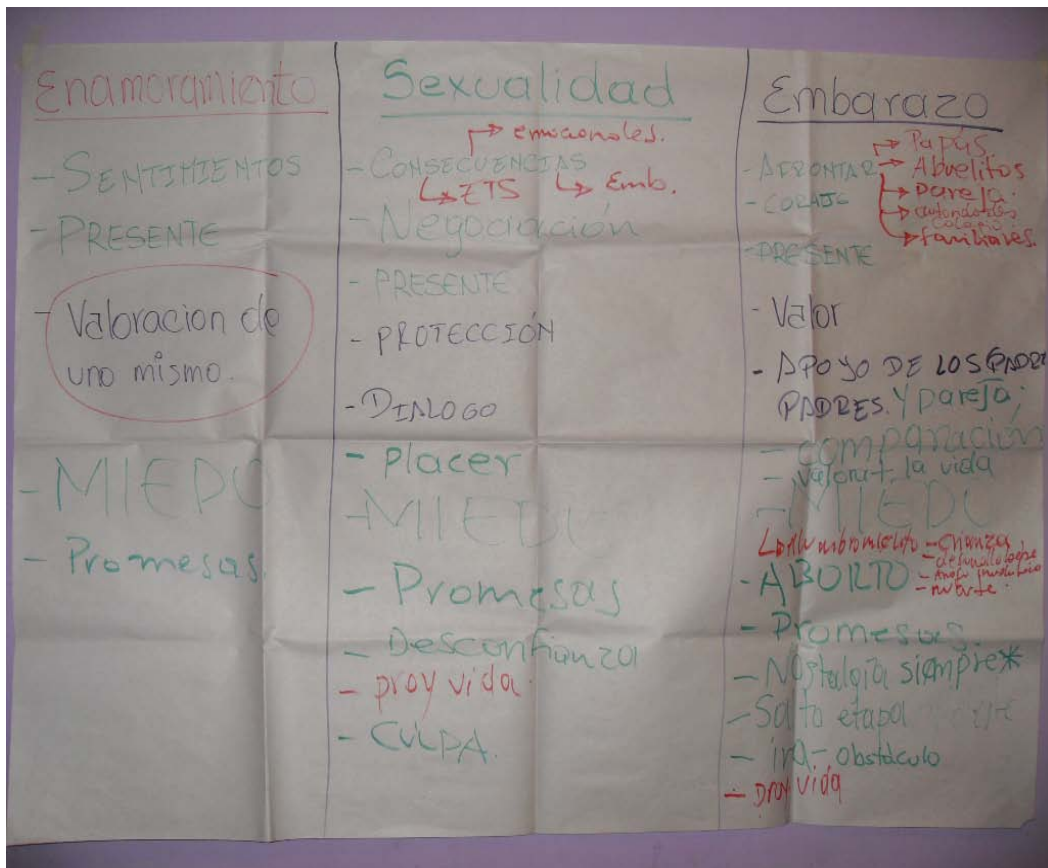 Enamoramiento
- SENTIMIENTOS
- PRESENTE
- Valoracion de
uno mismo.
- MIEDO
- Promesas.
Sexualidad
→ emocionales.
- CONSECUENCIAS
↳ ETS ↳ Emb.
- Negociación
- PRESENTE
- PROTECCIÓN
- DIALOGO
- placer
- MIEDO
- Promesas
- Desconfianza
- proy vida.
- CULPA.
Embarazo
→ Papás.
- AFRONTAR → Abuelitos
→ pareja.
- CORAJE
colegio.
→ familiares.
- PRESENTE
- Valor
- APOYO DE LOS PADRE
PADRES. Y pareja.
- comparación
- valorar la vida
- MIEDO
↳ Alumbramiento - crianza
- ABORTO
- muerte.
- Promesas.
- Nostalgia siempre*
- Salto etapa
- ira - obstáculo
- proy vida